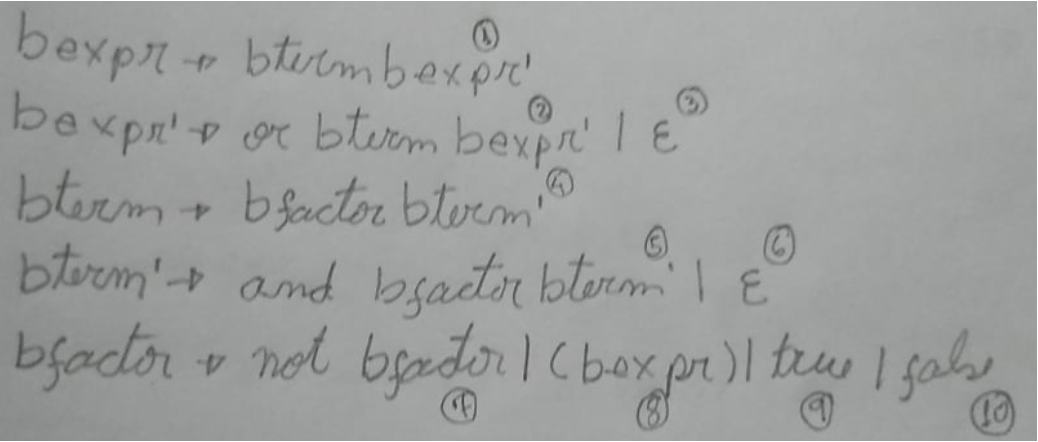 bexpr → bterm bexpr' ①
bexpr' → or bterm bexpr' ② | ε ③
bterm → bfactor bterm' ④
bterm' → and bfactor bterm' ⑤ | ε ⑥
bfactor → not bfactor | (bexpr) | true | false
⑦ ⑧ ⑨ ⑩